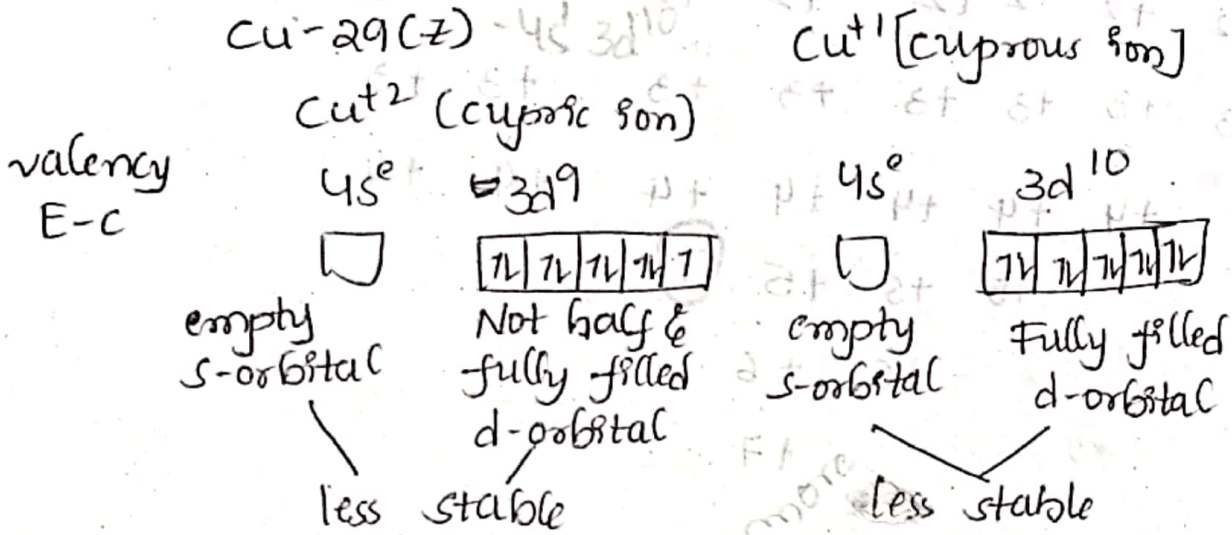 Cu-29(Z) - 4s¹ 3d¹⁰
Cu⁺¹ [cuprous ion]
Cu⁺² (cupric ion)
valency
E-C
4s⁰ 3d⁹
4s⁰ 3d¹⁰
empty
s-orbital
Not half &
fully filled
d-orbital
empty
s-orbital
Fully filled
d-orbital
less stable
more
less stable